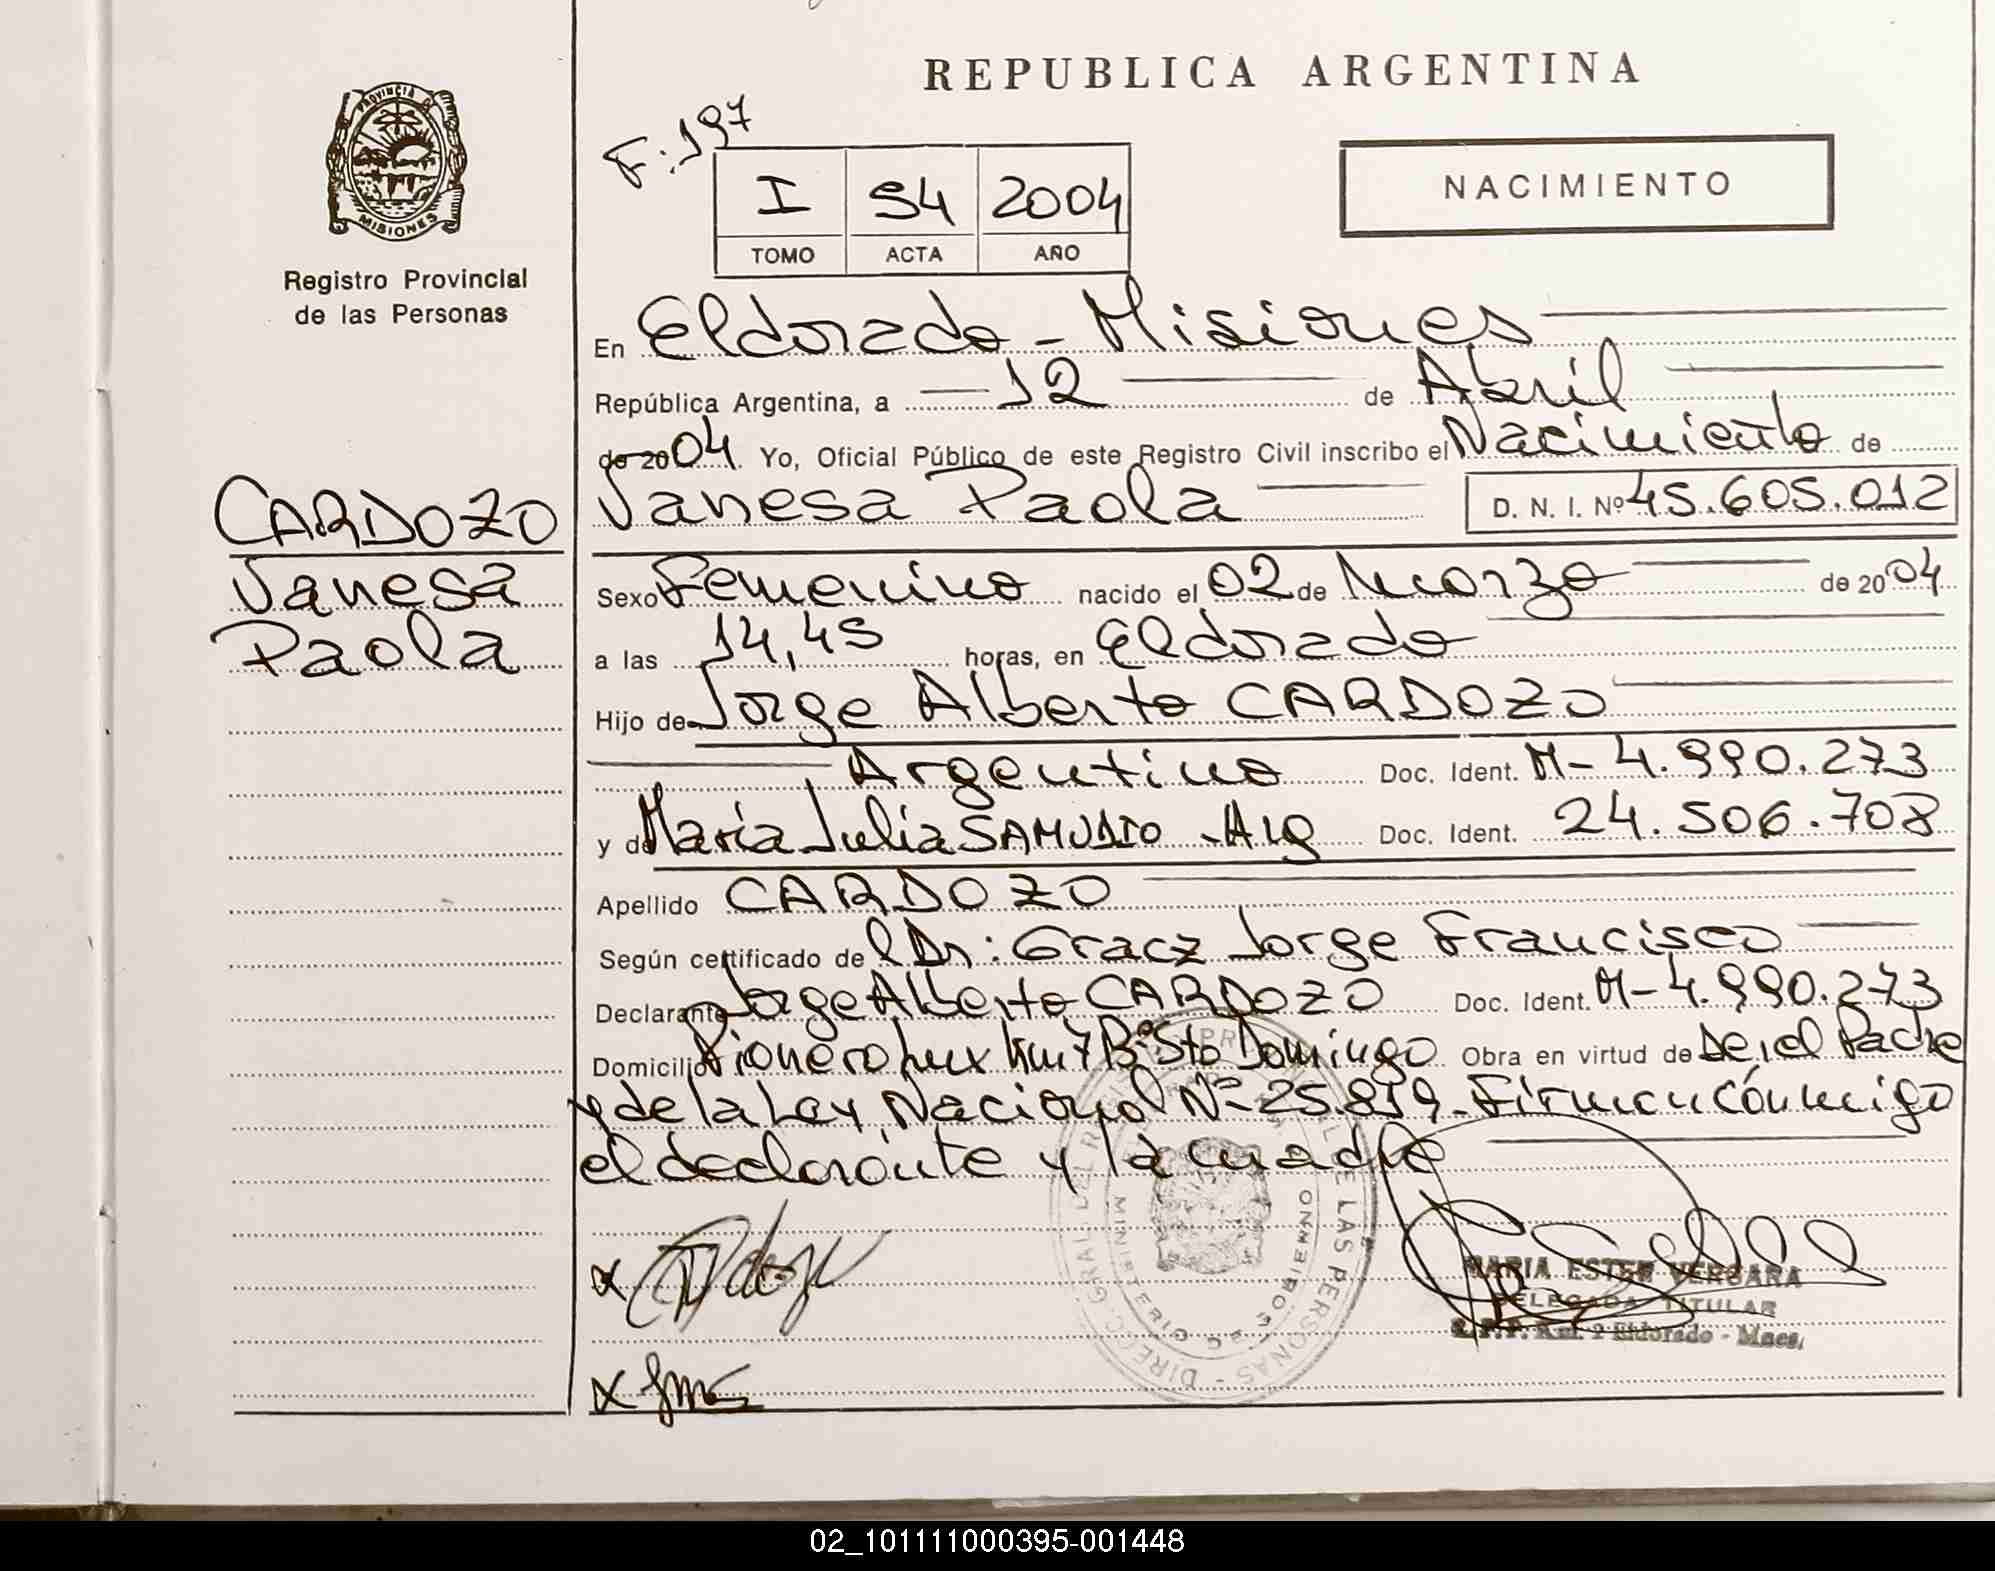 REPUBLICA ARGENTINA
PROVINCIA D
MISIONES
Registro Provincial
de las Personas
F: 197
I 54 2004
TOMO ACTA AÑO
NACIMIENTO
En Eldorado - Misiones
República Argentina, a 12 de Abril
de 2004. Yo, Oficial Público de este Registro Civil inscribo el Nacimiento de
Vanesa Paola D. N. I. Nº 45.605.012
CARDOZO
Vanesa
Paola
Sexo Femenino nacido el 02 de Marzo de 2004
a las 14,45 horas, en Eldorado
Hijo de Jorge Alberto CARDOZO
Argentino Doc. Ident. M- 4.990.273
y de María Julia SAMUDIO - Arg Doc. Ident. 24.506.708
Apellido CARDOZO
Según certificado del Dr: Gracz Jorge Francisco
Declarante Jorge Alberto CARDOZO Doc. Ident. M-4.990.273
Domicilio Pionero Km 7 Bº Sto Domingo Obra en virtud de el Padre
y de la Ley Nacional Nº 25.819. Firman conmigo
el declarante y la madre
MARIA ESTER VERGARA
DELEGADA TITULAR
Eldorado - Mnes.
02_101111000395-001448